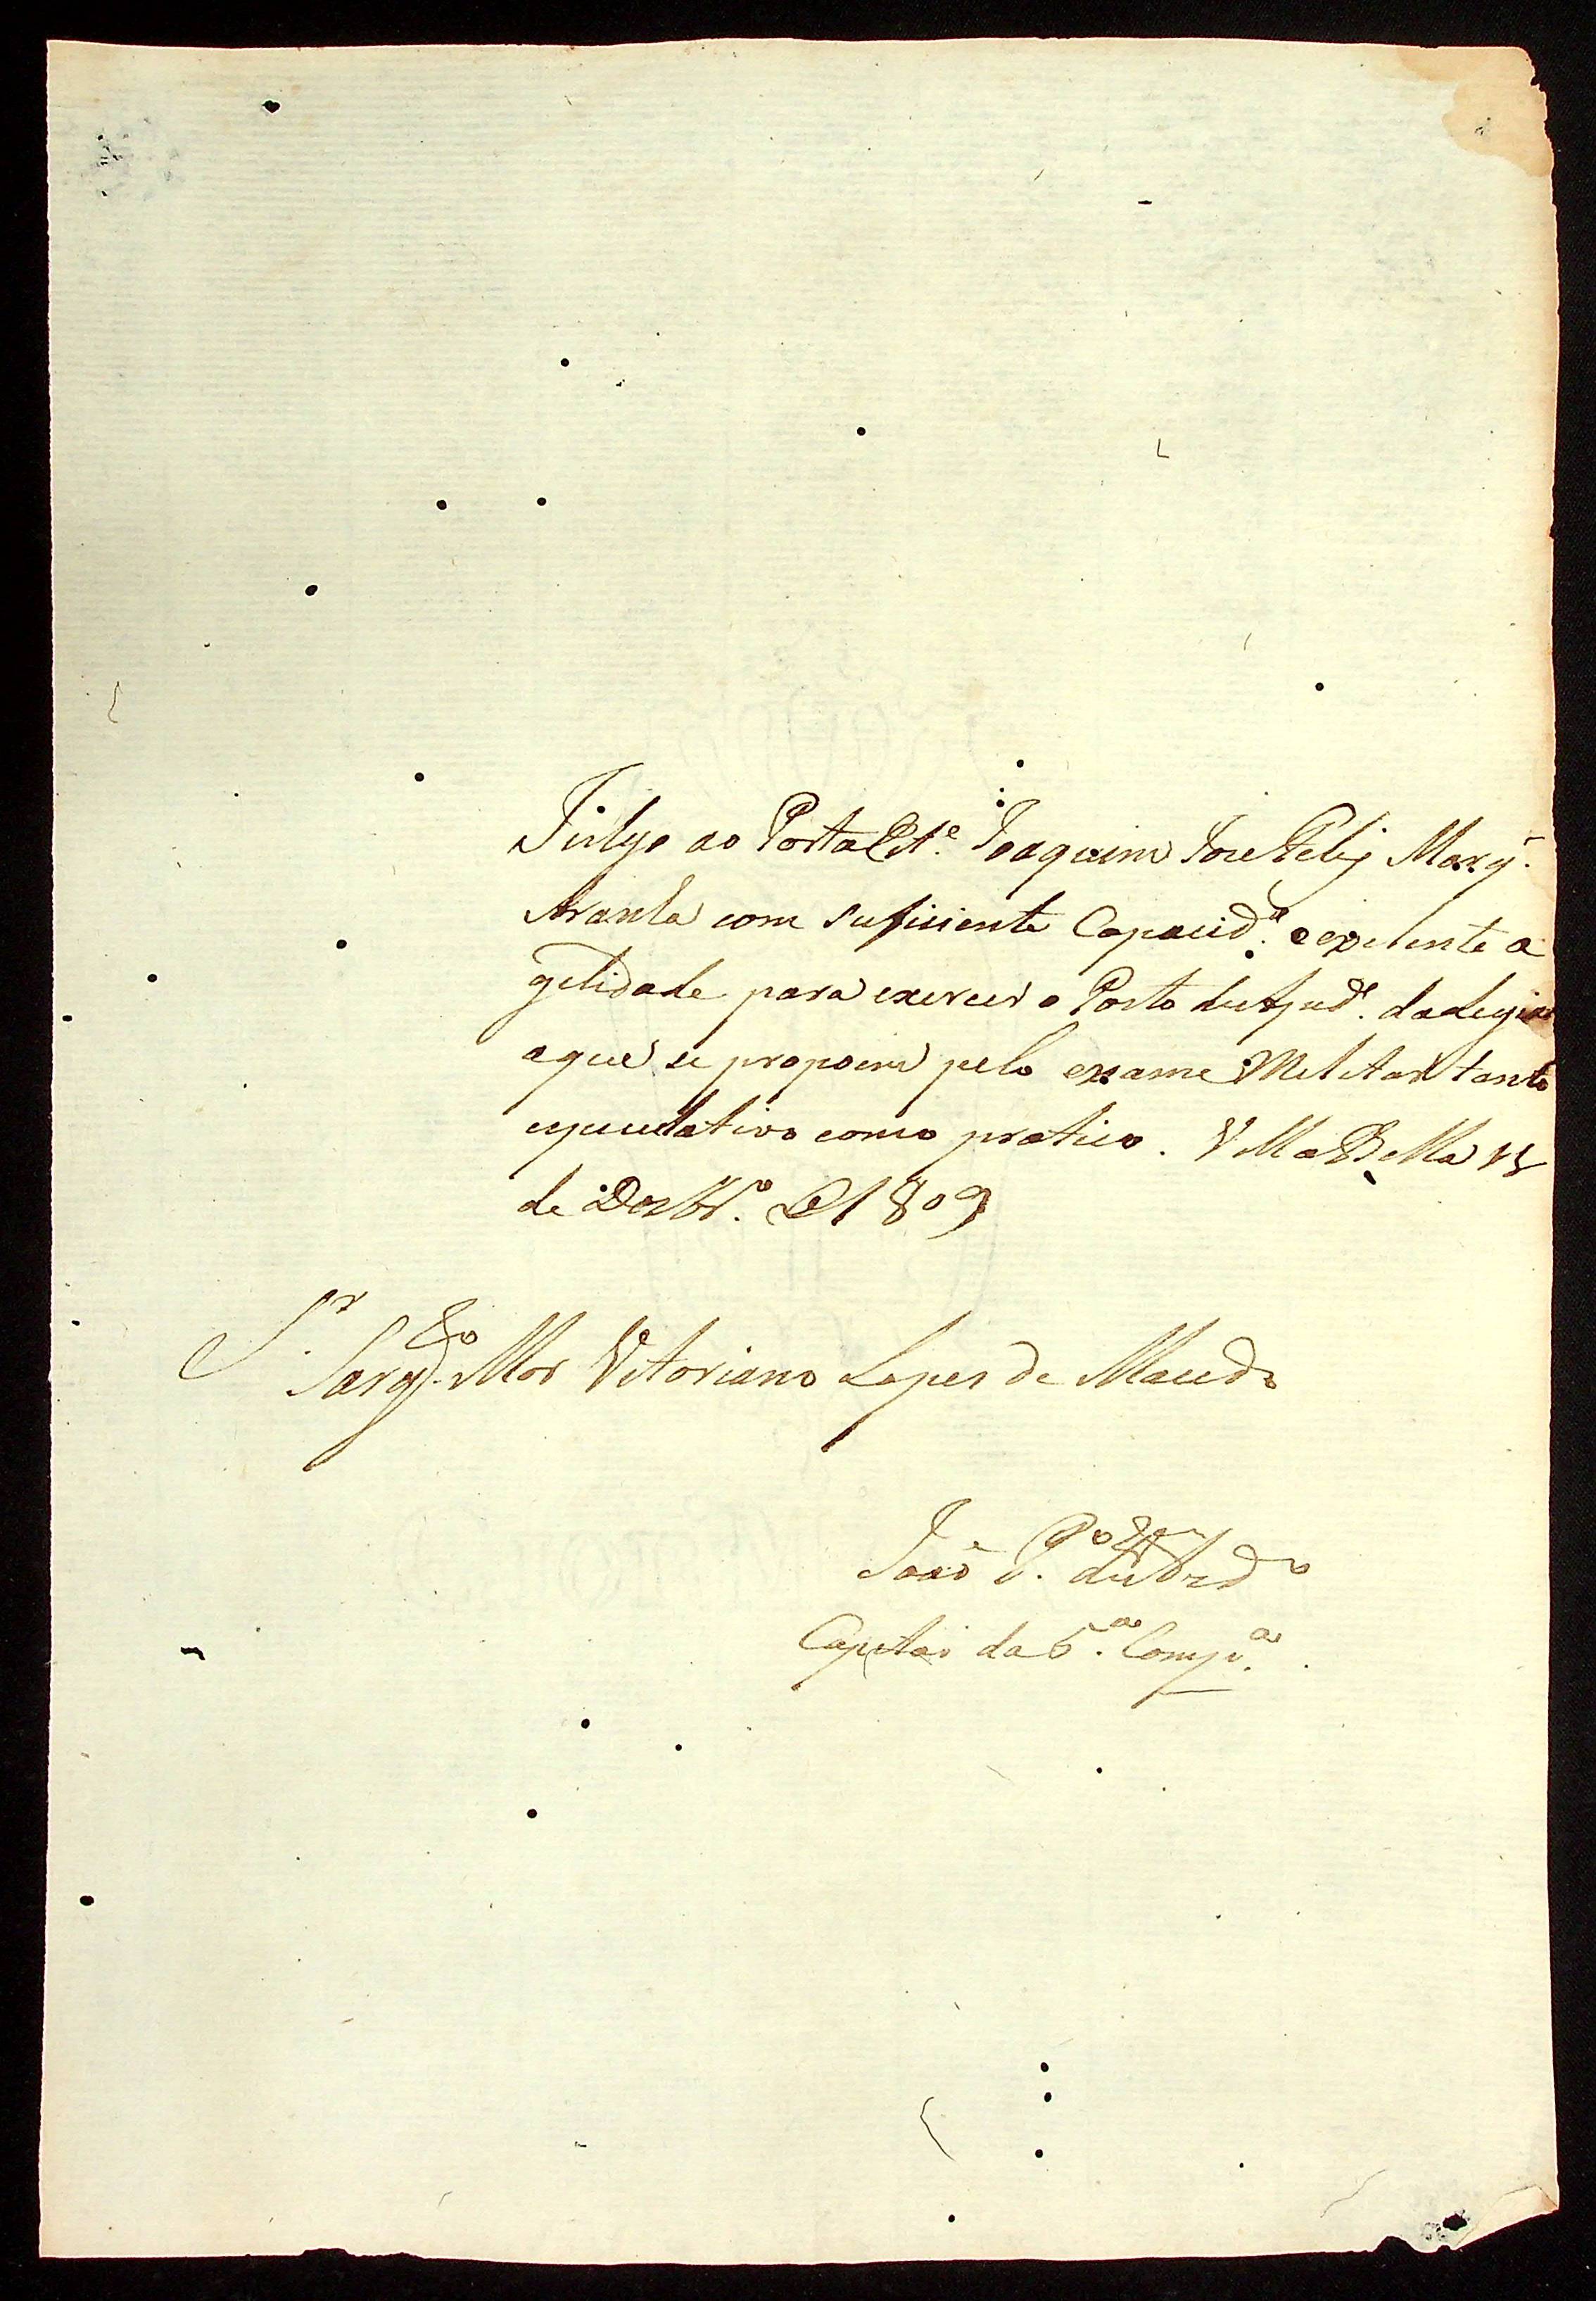 Julgo ao Porta Est.e Joaquim Joze Feliz Marq.
Aranha com suficiente Capacid.e e exelente a
gelidade para exercer o Posto de Ajud.e da Legiaõ
aque se propoem pelo exame Melitar tanto
especulativo como pratico. Villa Bella
de Dezbr.o de 1809
S.r Sarg.to Mor Vitoriano Lopes de Macedo
Joaõ P.
Capitaõ da 6.a Comp.a